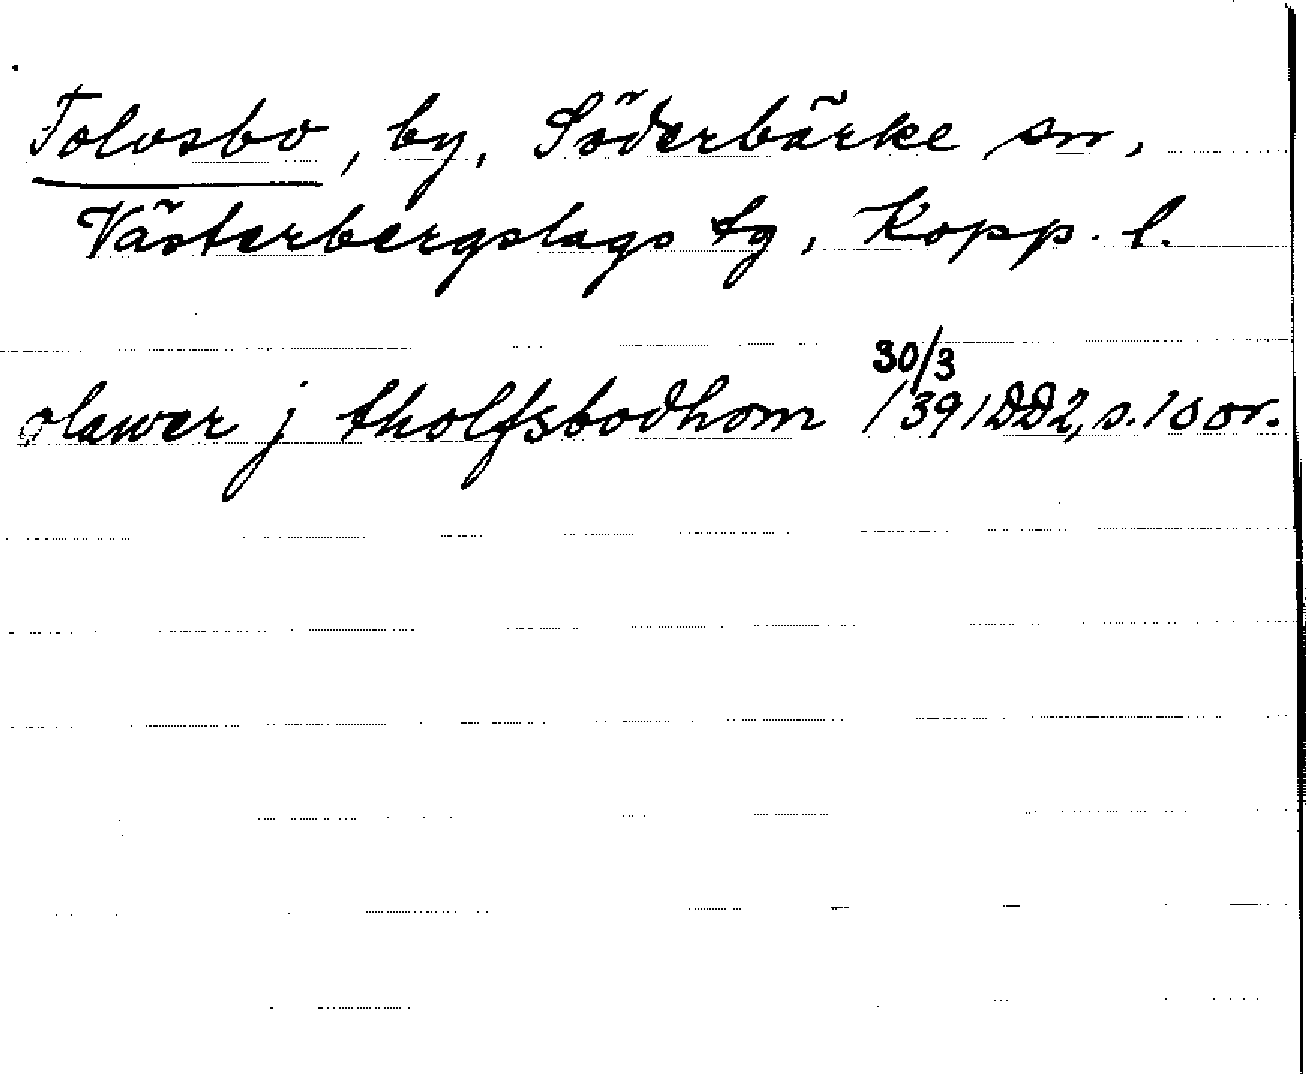 Tolvsbo, by, Söderbärke sn,
Västerbergslags tg, Kopp. l.
olawer j tholfsbodhom 30/3 1391 DD2, s. 10 or.